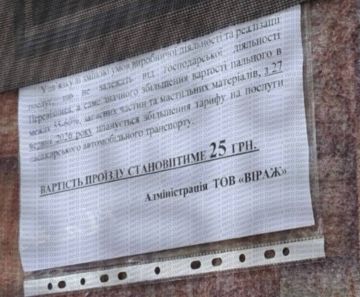 У зв'язку зі зміною умов виробничої діяльності та реалізації
послуг, що не залежать від господарської діяльності
Перевізника, а саме значного збільшення вартості пального в
межах запасних частин та мастильних матеріалів, з 27
2026 року планується збільшення тарифу на послуги
пасажирського автомобільного транспорту.
ВАРТІСТЬ ПРОЇЗДУ СТАНОВИТИМЕ 25 ГРН.
Адміністрація ТОВ «ВІРАЖ»